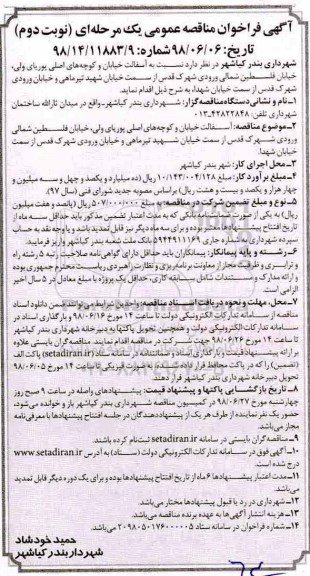 آگهی فراخوان مناقصه عمومی یک مرحله‌ای (نوبت دوم)
تاریخ: ۹۸/۰۶/۰۶ شماره: ۹۸/۱۴/۱۱۸۸۳/۹
شهرداری بندر کیاشهر در نظر دارد نسبت به آسفالت خیابان و کوچه‌های اصلی پوریای ولی،
خیابان فلسطین شمالی ورودی شهرک قدس از سمت خیابان شهید تیرماهی و خیابان ورودی
شهرک قدس از سمت خیابان شهدا، به شرح ذیل اقدام نماید.
۱- نام و نشانی دستگاه مناقصه گزار: شهرداری بندر کیاشهر- واقع در میدان ثارالله ساختمان
شهرداری تلفن: ۴۲۸۲۲۸۴۸-۰۱۳
۲- موضوع مناقصه: آسفالت خیابان و کوچه‌های اصلی پوریای ولی، خیابان فلسطین شمالی
ورودی شهرک قدس از سمت خیابان شهید تیرماهی و خیابان ورودی شهرک قدس از سمت
خیابان شهدا.
۳- محل اجرای کار: شهر بندر کیاشهر
۴- مبلغ برآورد کار: مبلغ ۱۰/۱۴۳/۰۰۴/۱۲۸ ریال (ده میلیارد و یکصد و چهل و سه میلیون و
چهار هزار و یکصد و بیست و هشت ریال) براساس مصوبه جدید شورای فنی (سال ۹۷).
۵- نوع و مبلغ تضمین شرکت در مناقصه: به مبلغ ۵۰۷/۰۰۰/۰۰۰ ریال (پانصد و هفت میلیون
ریال) به یکی از صورت‌های ضمانت‌نامه بانکی که به مدت اعتبار تضمین مذکور باید حداقل سه ماه از
تاریخ افتتاح پیشنهادها معتبر بوده و برای سه ماه دیگر نیز قابل تمدید باشد و یا وجه نقد به حساب
سپرده شهرداری به شماره جاری ۵۹۴۴۹۱۱۱۶۹ بانک ملت شعبه بندر کیاشهر واریز فرمایید.
۶- رشته و پایه پیمانکار: پیمانکاران باید حداقل دارای گواهی‌نامه صلاحیت رتبه ۵ رشته راه
و ترابری و ظرفیت مجاز از معاونت برنامه‌ریزی و نظارت راهبردی ریاست محترم جمهوری بوده
و ارائه مدارک و مستندات شامل سابقه کاری، حداقل یک پروژه با مبلغ معادل در ۵ سال اخیر
الزامی است.
۷- محل، مهلت و نحوه دریافت اسناد مناقصه: واجدین شرایط می‌توانند ضمن دانلود اسناد
مناقصه از سامانه تدارکات الکترونیکی دولت تا ساعت ۱۴ مورخ ۹۸/۰۶/۱۶ و بارگذاری اسناد در
سامانه تدارکات الکترونیکی دولت و همچنین تحویل پاکتها به دبیرخانه شهرداری بندر کیاشهر
تا ساعت ۱۴ مورخ ۹۸/۰۶/۲۶ جهت شرکت در مناقصه اقدام نمایند. مناقصه گران بایستی علاوه
بر ارائه پیشنهاد قیمت و بارگذاری اسناد و ضمانت‌نامه در سامانه ستاد (setadiran.ir) پاکت الف
(تضمین) را که در پاکت محافظ قرار داده‌اند به صورت فیزیکی تا ساعت ۱۴ مورخ ۹۸/۰۶/۰۵
تحویل دبیرخانه شهرداری بندر کیاشهر قرار دهند.
۸- تاریخ بازگشایی پاکتها و پیشنهاد قیمت: پیشنهادهای واصله در ساعت ۹ صبح روز
چهارشنبه مورخ ۹۸/۰۶/۲۷ در کمیسیون مناقصه شهرداری بندر کیاشهر باز و خوانده می‌شود،
حضور یک نفر نماینده از طرف هر یک از پیشنهاددهندگان در جلسه افتتاح پیشنهادها با معرفی‌نامه
مجاز می‌باشد.
۹- مناقصه گران بایستی در سامانه setadiran.ir ثبت‌نام کرده باشند.
۱۰- آگهی فوق در سامانه تدارکات الکترونیکی دولت (ستاد) به آدرس www.setadiran.ir
درج شده است.
۱۱- مدت اعتبار پیشنهادها ۶ ماه از تاریخ افتتاح پیشنهادها بوده و برای یک دوره دیگر قابل تمدید
می‌باشد.
۱۲- شهرداری در رد یا قبول پیشنهادها مختار می‌باشد.
۱۳- هزینه انتشار آگهی‌ها به عهده برنده مناقصه می‌باشد.
۱۴- شماره فراخوان در سامانه ستاد ۲۰۹۸۰۵۰۱۷۶۰۰۰۰۰۵ می‌باشد.
حمید خودشاد
شهردار بندر کیاشهر